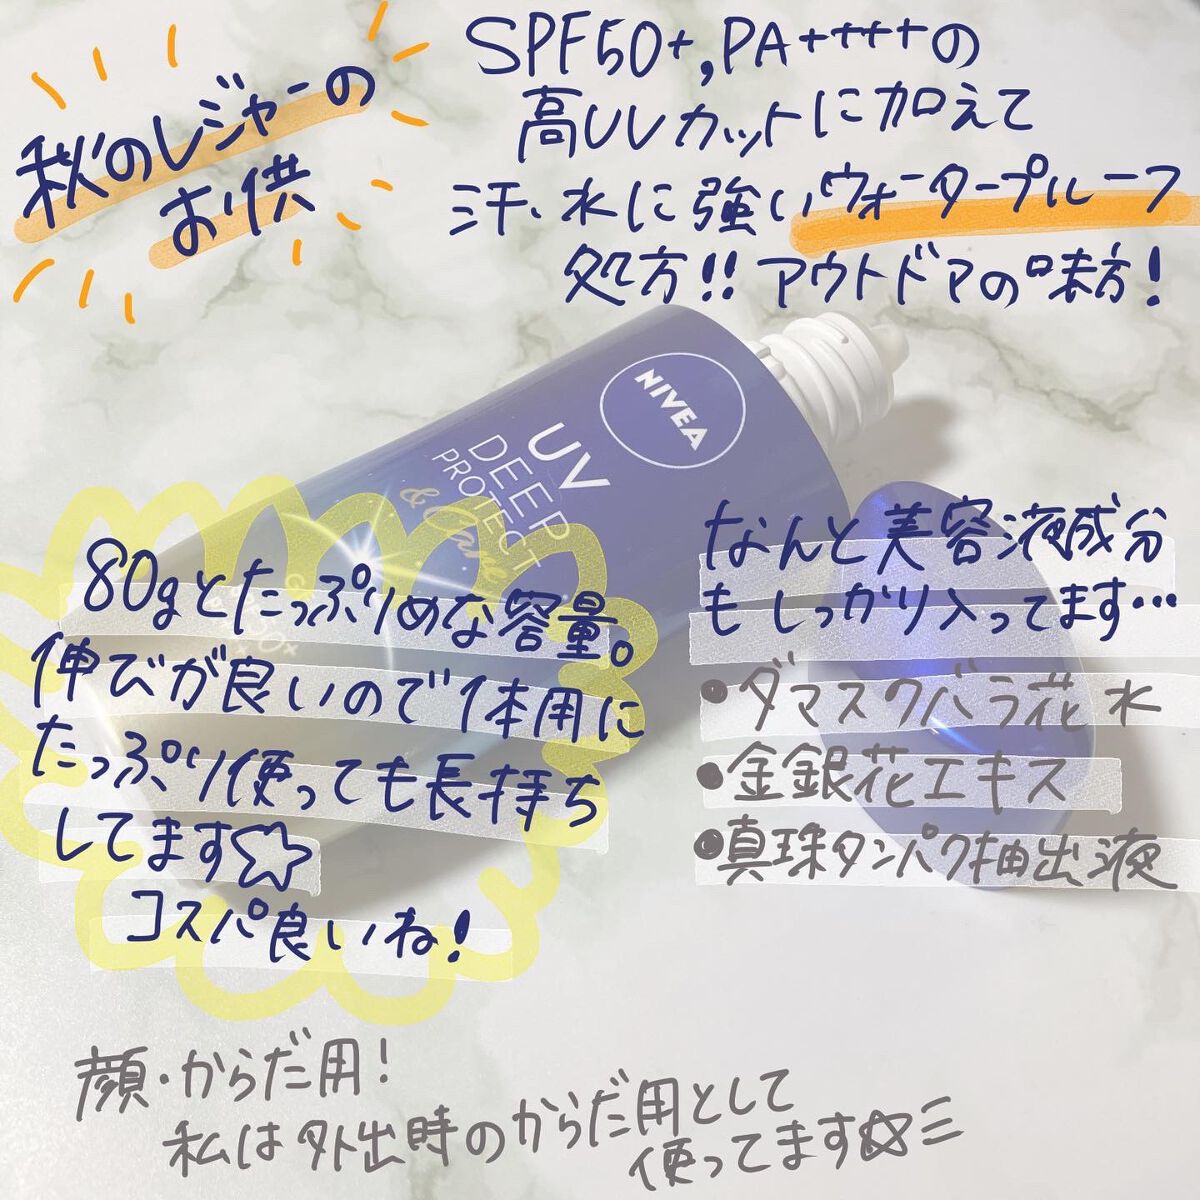 秋のレジャーの
お供
SPF50+,PA++++の
高UVカットに加えて
汗、水に強いウォータープルーフ
処方!!アウトドアの味方!
NIVEA
UV
DEEP
PROTECT
& Care
80gとたっぷりめな容量。
伸びが良いので体用に
たっぷり使っても長持ち
してます☆
コスパ良いね!
なんと美容液成分
もしっかり入ってます…
•ダマスクバラ花水
•金銀花エキス
•真珠タンパク抽出液
顔・からだ用!
私は外出時のからだ用として
使ってます☆彡